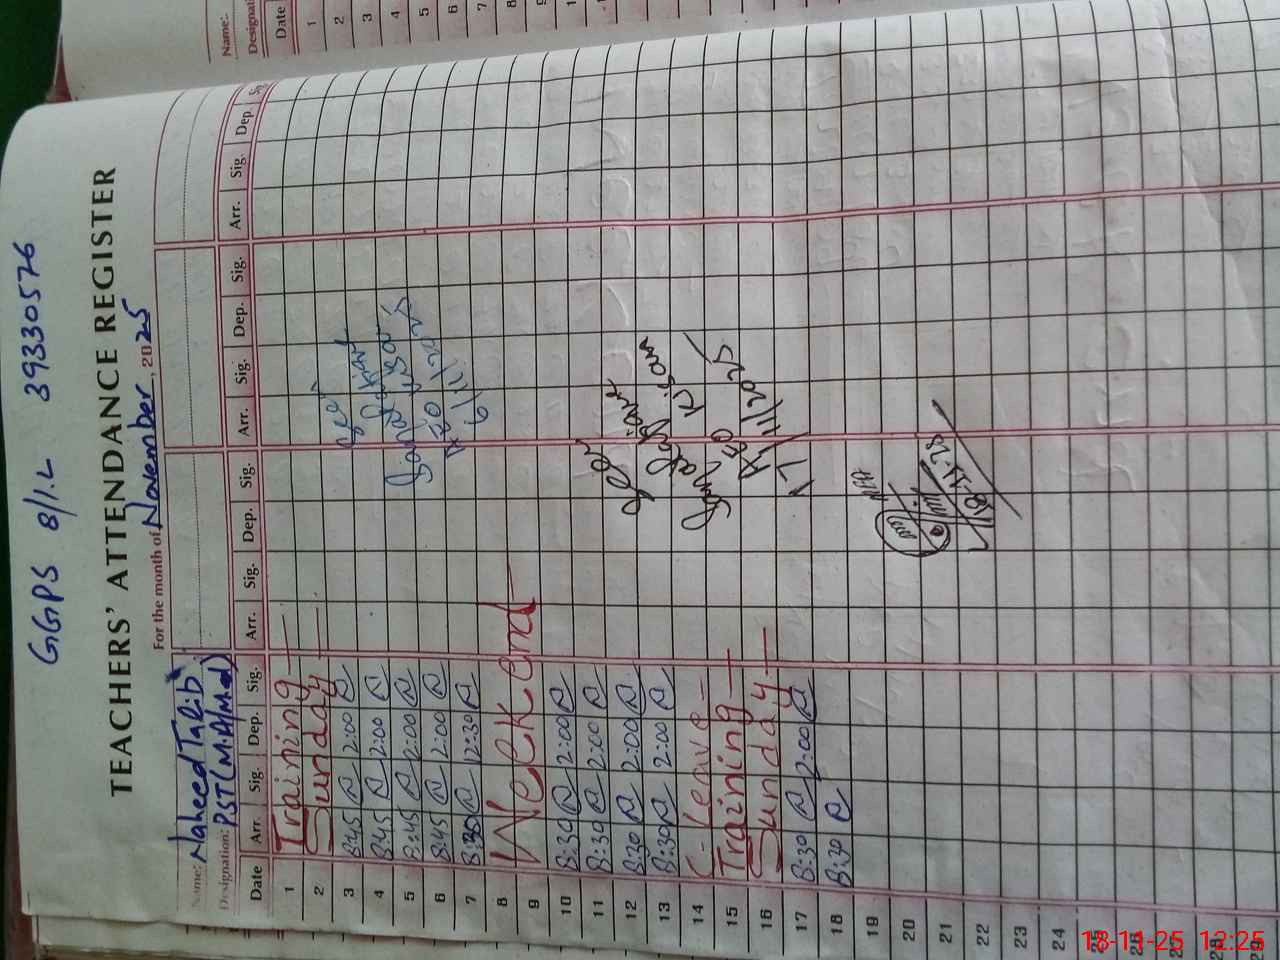 GGPS 8/1.L 39330576
TEACHERS' ATTENDANCE REGISTER
For the month of November, 2025
Name: Naheed Talib
Designation: PST (M.A/M.ed)
Date Arr. Sig. Dep. Sig. Arr. Sig. Dep. Sig. Arr. Sig. Dep. Sig. Arr. Sig. Dep.
1 Training
2 Sunday
3 8:45 2:00
4 8:45 2:00
5 8:45 2:00
6 8:45 2:00
7 8:30 12:30
8 Week end
9
10 8:30 2:00
11 8:30 2:00
12 8:30 2:00
13 8:30 2:00
14 C-leave
15 Training
16 Sunday
17 8:30 2:00
18 8:30
19
20
21
22
23
24
25
26
27
28
29
6/11/2025
AEO
17/11/2025
18-11-25
Name:
Designati
Date
1
2
3
4
5
6
7
8
18-11-25 12:25